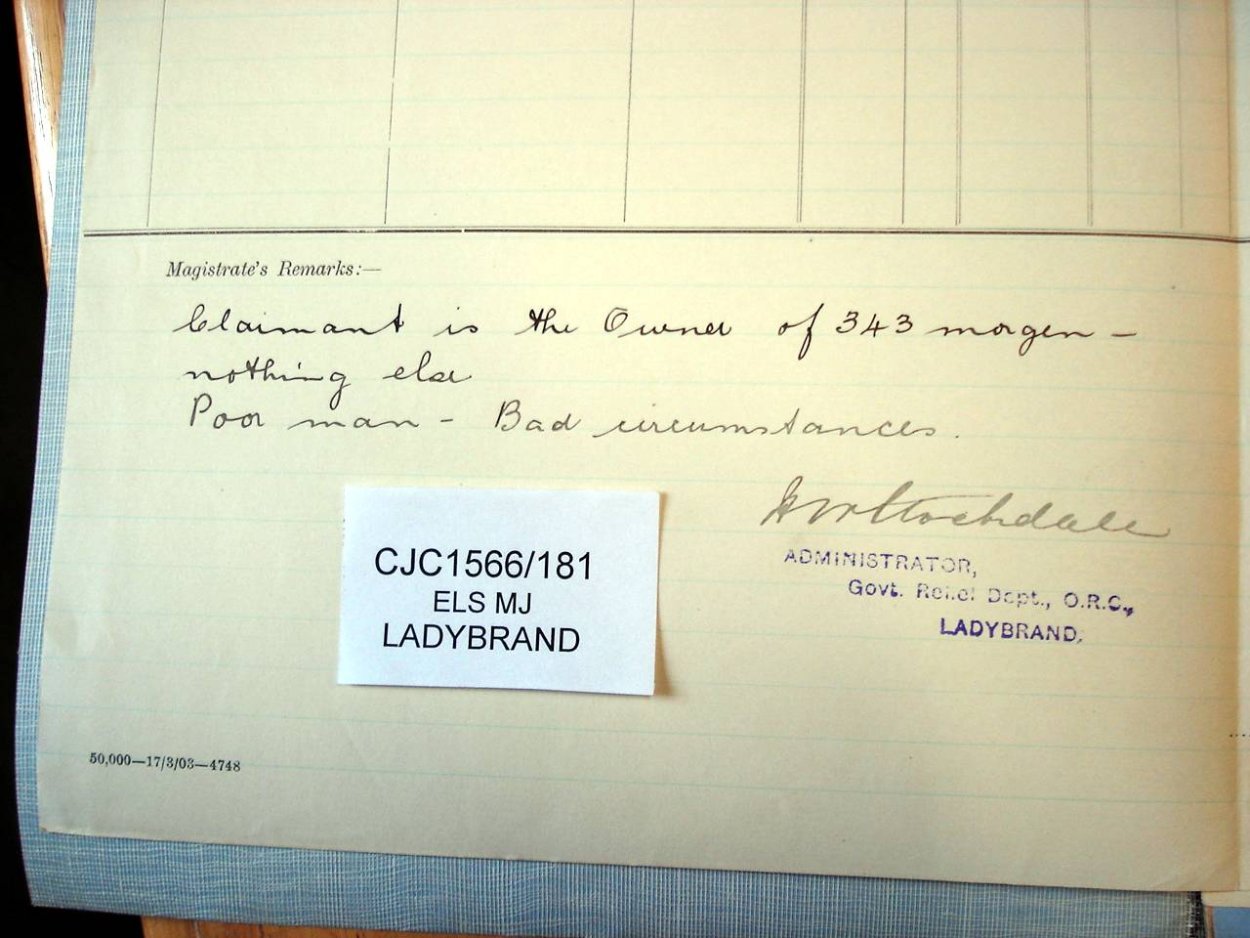 Magistrate's Remarks:—
Claimant is the Owner of 343 morgen —
nothing else
Poor man - Bad circumstances.
Stockdale
ADMINISTRATOR,
Govt. Relief Dept., O.R.C.,
LADYBRAND.
CJC1566/181
ELS MJ
LADYBRAND
50,000—17/3/03—4748